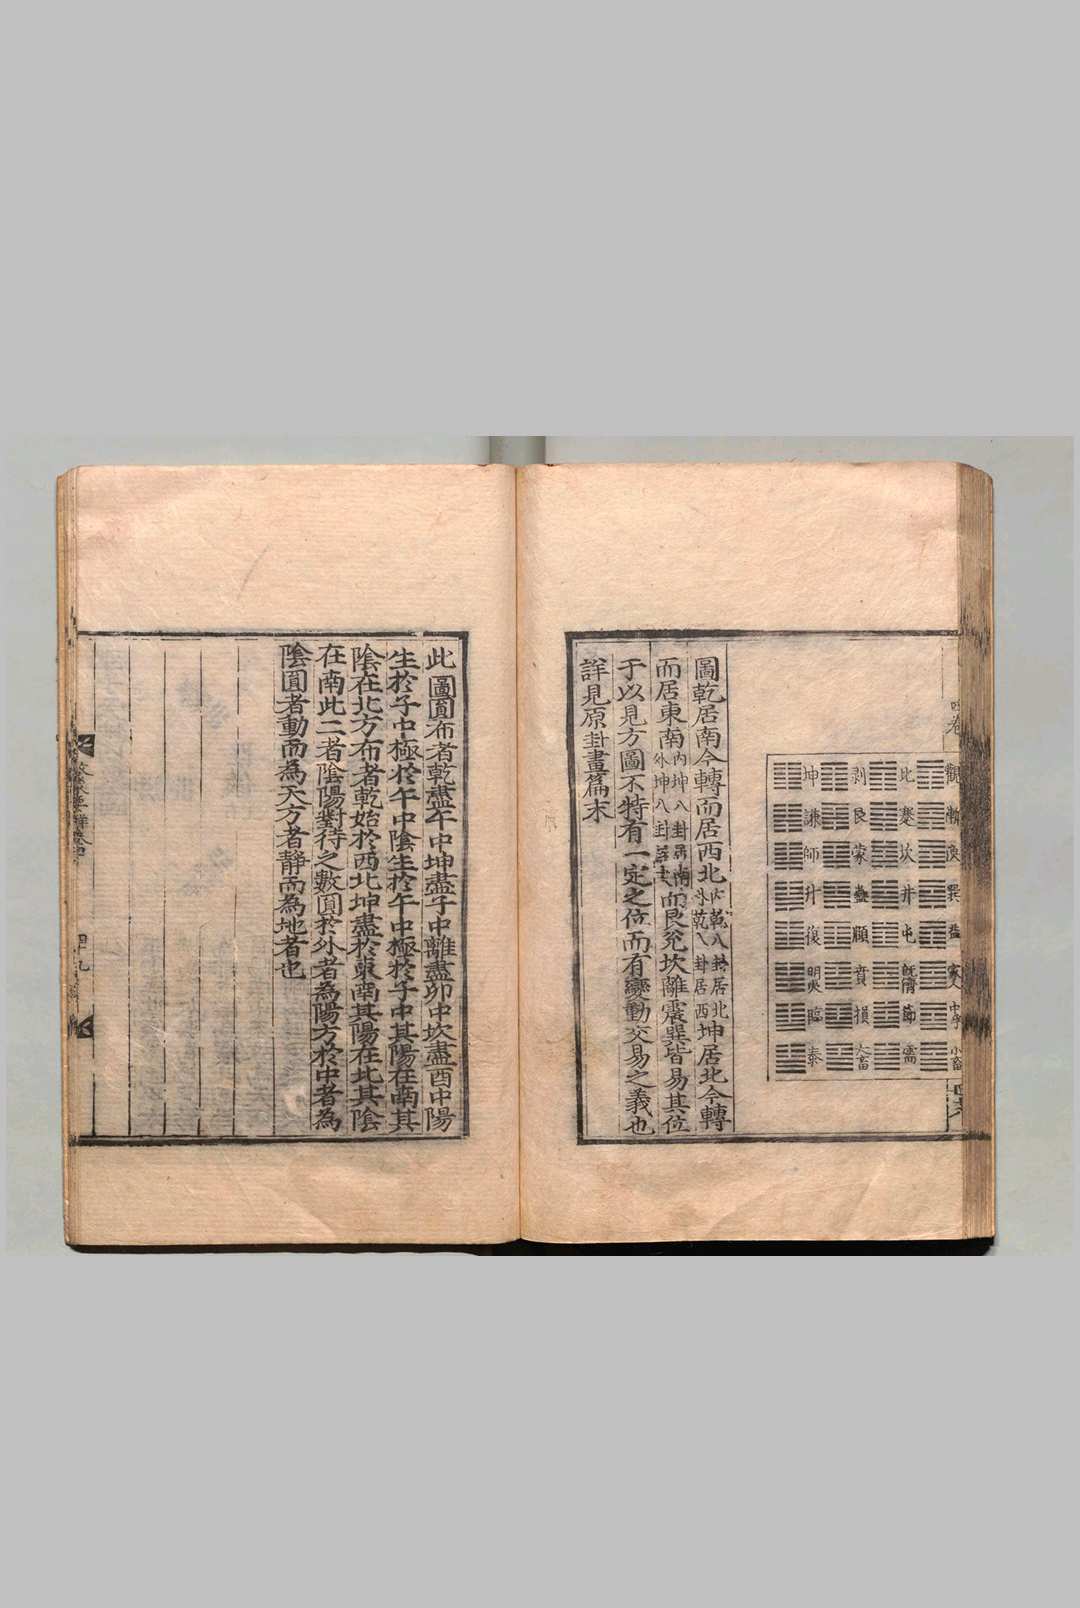 觀 比 剥 坤
漸 蹇 艮 謙
渙 坎 蒙 師
巽 井 蠱 升
益 屯 頤 復
家人 既濟 賁 明夷
中孚 節 損 臨
小畜 需 大畜 泰
圖乾居南今轉而居西北内乾八卦居北外乾八卦居西坤居北今轉
而居東南内坤八卦居南外坤八卦居東而艮兌坎離震巽皆易其位
于以見方圖不特有一定之位而有變動交易之義也
詳見原卦畫篇末
此圖圓布者乾盡午中坤盡子中離盡卯中坎盡酉中陽
生於子中極於午中陰生於午中極於子中其陽在南其
陰在北方布者乾始於西北坤盡於東南其陽在北其陰
在南此二者陰陽對待之數圓於外者為陽方於中者為
陰圓者動而為天方者靜而為地者也
四十九